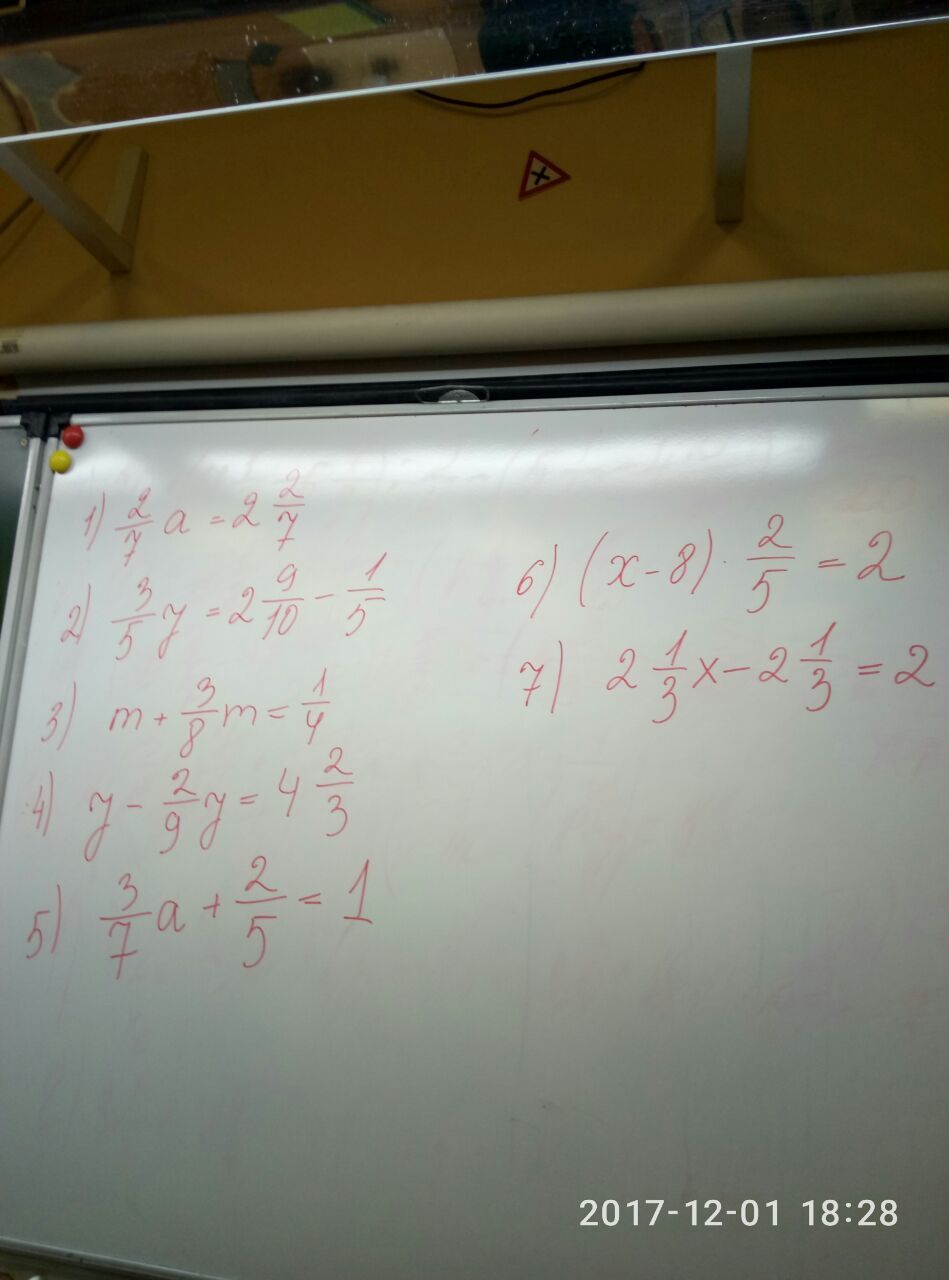 1) 2/7 a = 2 2/7
2) 3/5 y = 2 9/10 - 1/5
3) m + 3/8 m = 1/4
4) y - 2/9 y = 4 2/3
5) 3/7 a + 2/5 = 1
6) (x - 8) · 2/5 = 2
7) 2 1/3 x - 2 1/3 = 2
2017-12-01 18:28